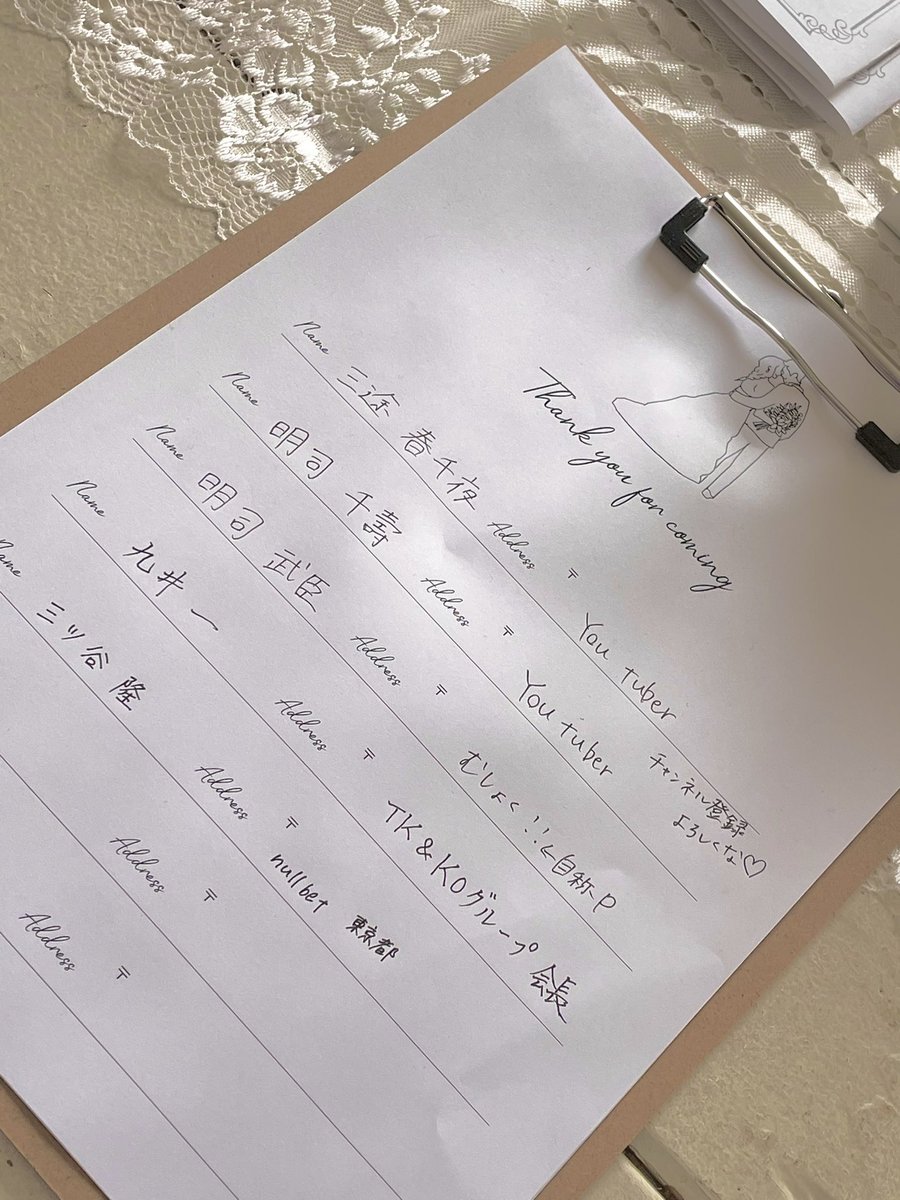 Thank you for coming
Name 三途 春千夜 Address 〒 You tuber
チャンネル登録
よろしくな♡
Name 明司 千壽 Address 〒 You tuber
Name 明司 武臣 Address 〒 むしょく!!←自称P
Name 九井 一 Address 〒 TK&KOグループ 会長
Name 三ツ谷 隆 Address 〒 nullbet 東京都
Address 〒
Address 〒